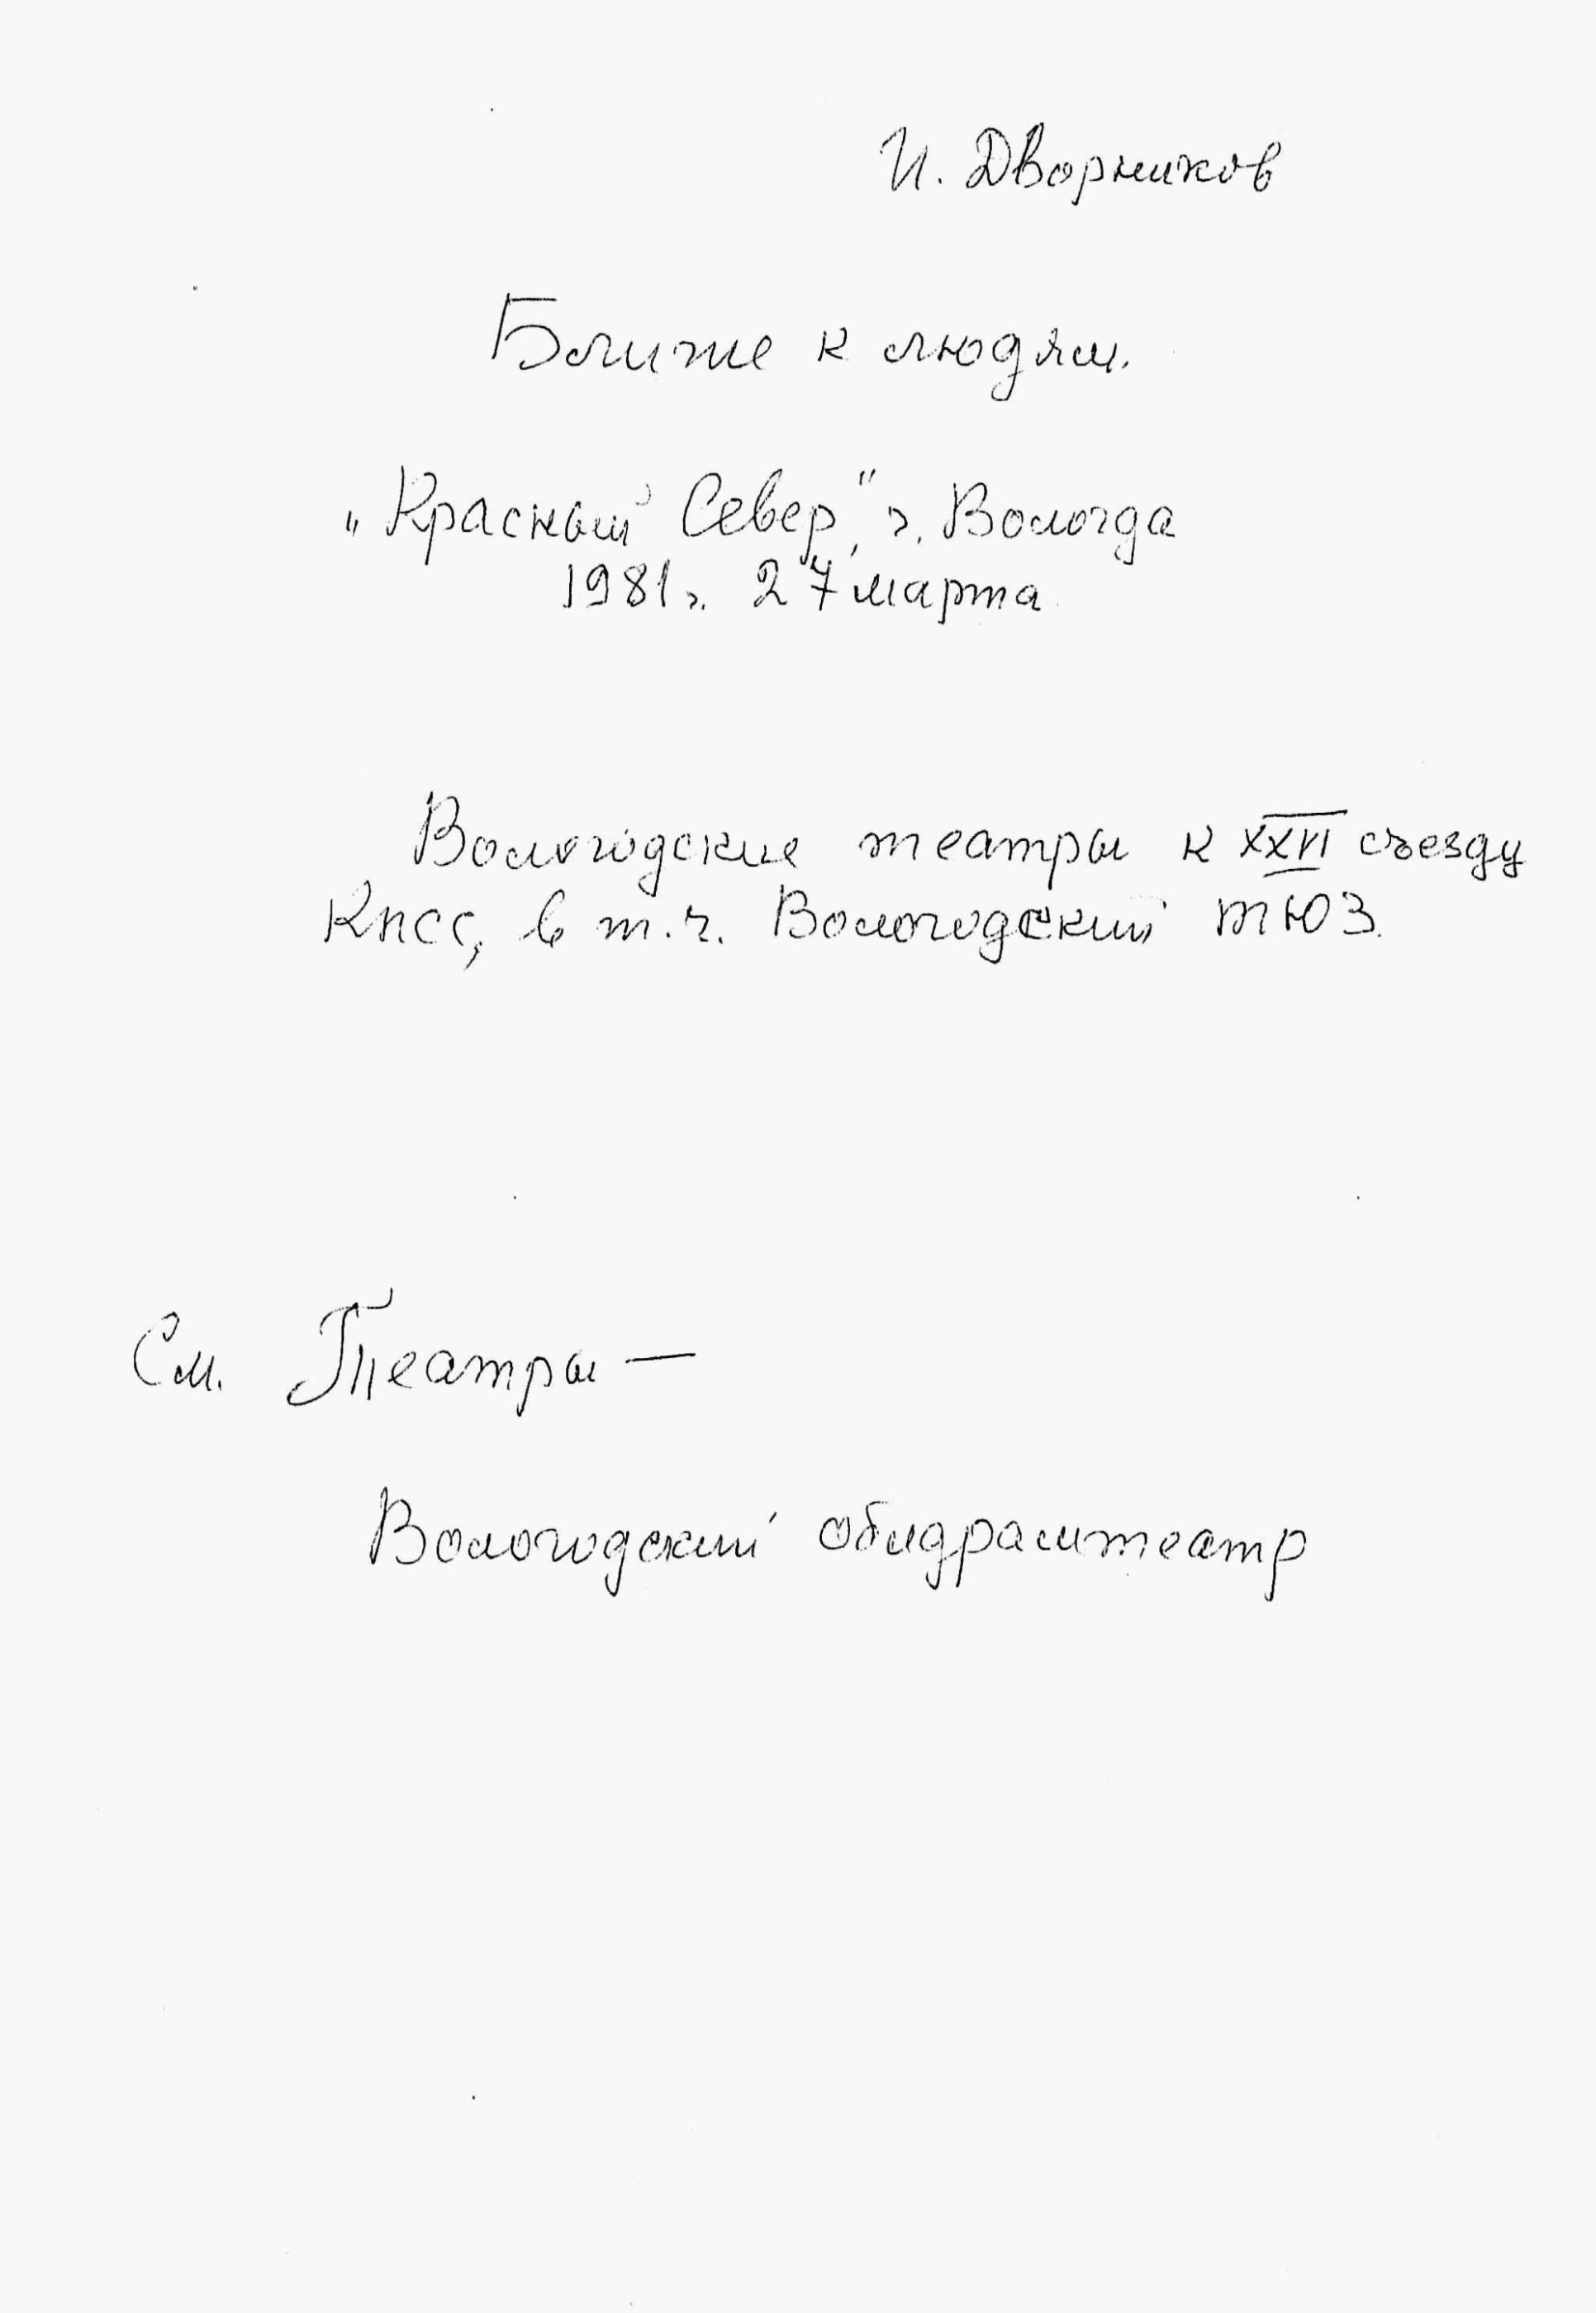 И. Дворников
Ближе к людям.
„Красный Север", г. Вологда
1981г. 27 марта
Вологодские театры к XXVI съезду
КПСС, в т.ч. Вологодский ТЮЗ.
См. Театры —
Вологодский облдрамтеатр